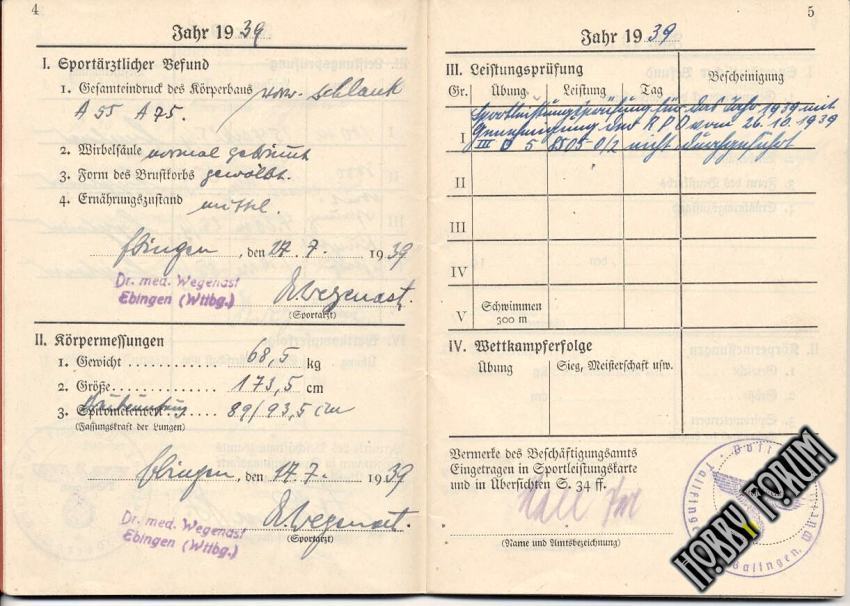 4
Jahr 1939
I. Sportärztlicher Befund
1. Gesamteindruck des Körperbaus schlank
A 55 A 75.
2. Wirbelsäule normal gekrümmt
3. Form des Brustkorbs gewölbt.
4. Ernährungszustand mittel.
Ebingen, den 17. 7. 1939
Dr. med. Wegenast
Ebingen (Wttbg.)
Wegenast.
(Sportarzt)
II. Körpermessungen
1. Gewicht 68,5 kg
2. Größe 173,5 cm
3. Spirometerwert 89/93,5 cm
(Fassungskraft der Lungen)
Ebingen, den 17. 7. 1939
Dr. med. Wegenast
Ebingen (Wttbg.)
Wegenast.
(Sportarzt)
5
Jahr 1939
III. Leistungsprüfung
Gr. Übung Leistung Tag Bescheinigung
Sportleistungsprüfung für das Jahr 1939 mit
I Genehmigung des RPO vom 26.10.1939
III 5 nicht durchgeführt
II
III
IV
V Schwimmen
300 m
IV. Wettkampferfolge
Übung Sieg, Meisterschaft usw.
Vermerke des Beschäftigungsamts
Eingetragen in Sportleistungskarte
und in Übersichten S. 34 ff.
(Name und Amtsbezeichnung)
Tailfingen
Balingen, Württ
HOBBY FORUM